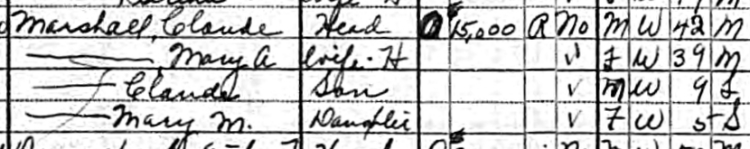 Marshall, Claude Head O 15,000 R No M W 42 M
— Mary A Wife-H ✓ F W 39 M
— Claude Son ✓ M W 9 S
— Mary M. Daughter ✓ F W 5 S